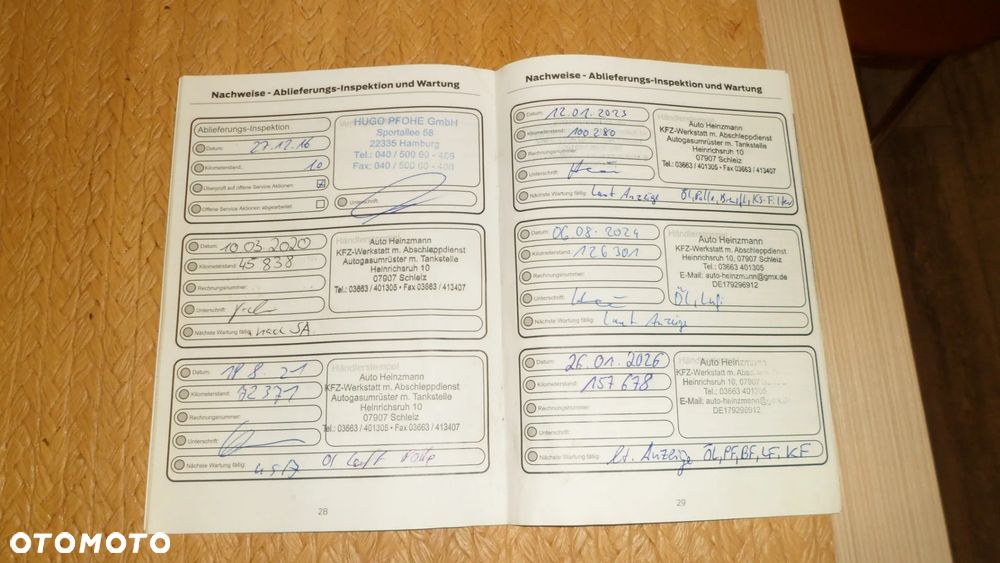 Nachweise - Ablieferungs-Inspektion und Wartung
Ablieferungs-Inspektion
Datum: 27.12.16
Kilometerstand: 10
Überprüft auf offene Service Aktionen:
Offene Service Aktionen abgearbeitet:
HUGO PFOHE GmbH
Sportallee 58
22335 Hamburg
Tel.: 040 / 500 60 -
Fax: 040 / 500 60 -
Unterschrift:
Datum: 10.03.2020
Kilometerstand: 45 838
Rechnungsnummer:
Unterschrift:
Nächste Wartung fällig: nach SA
Händlerstempel
Auto Heinzmann
KFZ-Werkstatt m. Abschleppdienst
Autogasumrüster m. Tankstelle
Heinrichsruh 10
07907 Schleiz
Tel.: 03663 / 401305 • Fax 03663 / 413407
Datum: 18.8.21
Kilometerstand: 72371
Rechnungsnummer:
Unterschrift:
Nächste Wartung fällig:
Händlerstempel
Auto Heinzmann
KFZ-Werkstatt m. Abschleppdienst
Autogasumrüster m. Tankstelle
Heinrichsruh 10
07907 Schleiz
Tel.: 03663 / 401305 • Fax 03663 / 413407
28
Nachweise - Ablieferungs-Inspektion und Wartung
Datum: 12.01.2023
Kilometerstand: 100 280
Rechnungsnummer:
Unterschrift:
Nächste Wartung fällig: Laut Anzeige
Auto Heinzmann
KFZ-Werkstatt m. Abschleppdienst
Autogasumrüster m. Tankstelle
Heinrichsruh 10
07907 Schleiz
Tel.: 03663 / 401305 • Fax 03663 / 413407
Datum: 06.08.2024
Kilometerstand: 126 301
Rechnungsnummer:
Unterschrift:
Öl, Luf
Nächste Wartung fällig: Laut Anzeige
Auto Heinzmann
KFZ-Werkstatt m. Abschleppdienst
Heinrichsruh 10, 07907 Schleiz
Tel.: 03663 401305
E-Mail: auto-heinzmann@gmx.de
DE179296912
Datum: 26.01.2026
Kilometerstand: 157 678
Rechnungsnummer:
Unterschrift:
Nächste Wartung fällig: lt. Anzeige ÖL, PF, BF, LF, KF
Auto Heinzmann
KFZ-Werkstatt m.
Heinrichsruh 10, 07907
Tel.: 03663 401305
E-Mail: auto-heinzmann@gmx.de
DE179296912
29
OTOMOTO